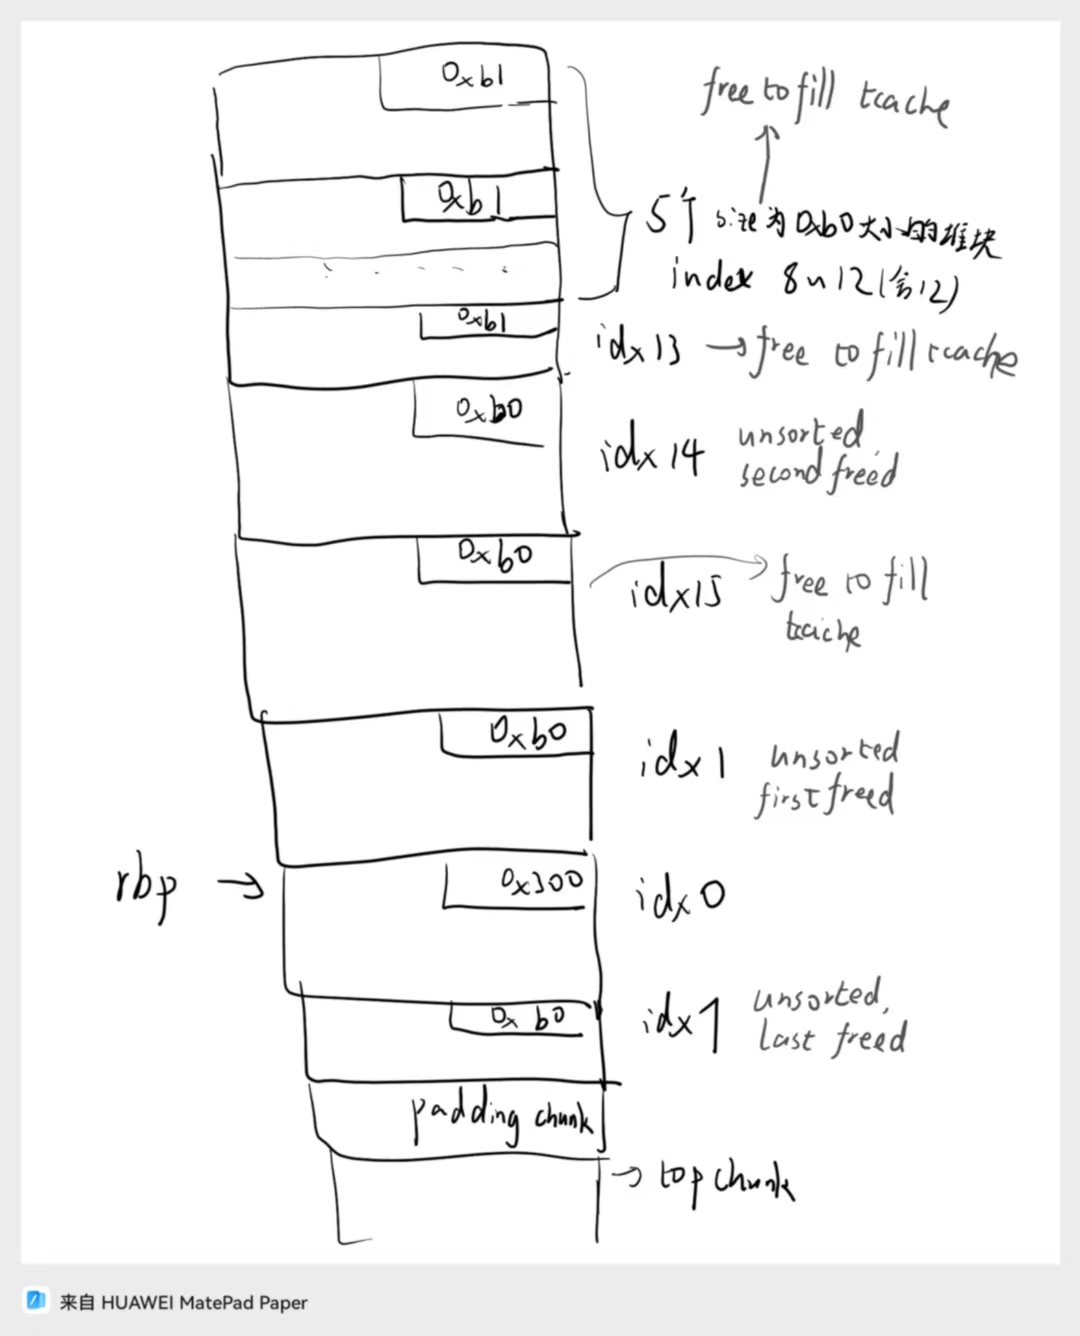 0xb1
free to fill tcache
0xb1
5个 size为0xb0大小的堆块
index 8~12(含12)
0xb1
idx13 → free to fill tcache
0xb0
idx14 unsorted,
second freed
0xb0
idx15 free to fill
tcache
0xb0
idx1 unsorted
first freed
rbp → 0x300 idx0
0x b0
idx7 unsorted,
last freed
padding chunk
→ top chunk
来自 HUAWEI MatePad Paper